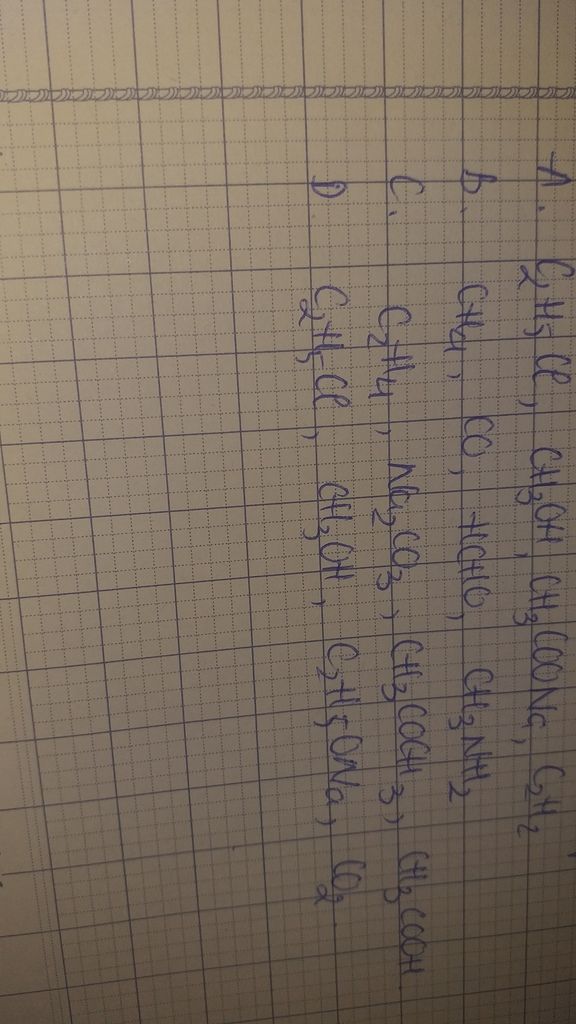 A. C₂H₅Cl, CH₃OH, CH₃COONa, C₂H₂
B. CH₄, CO, HCHO, CH₃NH₂
C. C₂H₄, Na₂CO₃, CH₃COCH₃, CH₃COOH
D. C₂H₅Cl, CH₃OH, C₂H₅ONa, CO₂